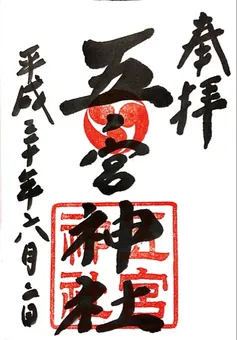 奉拝
五宮神社
五宮
神社
平成三十年六月二日